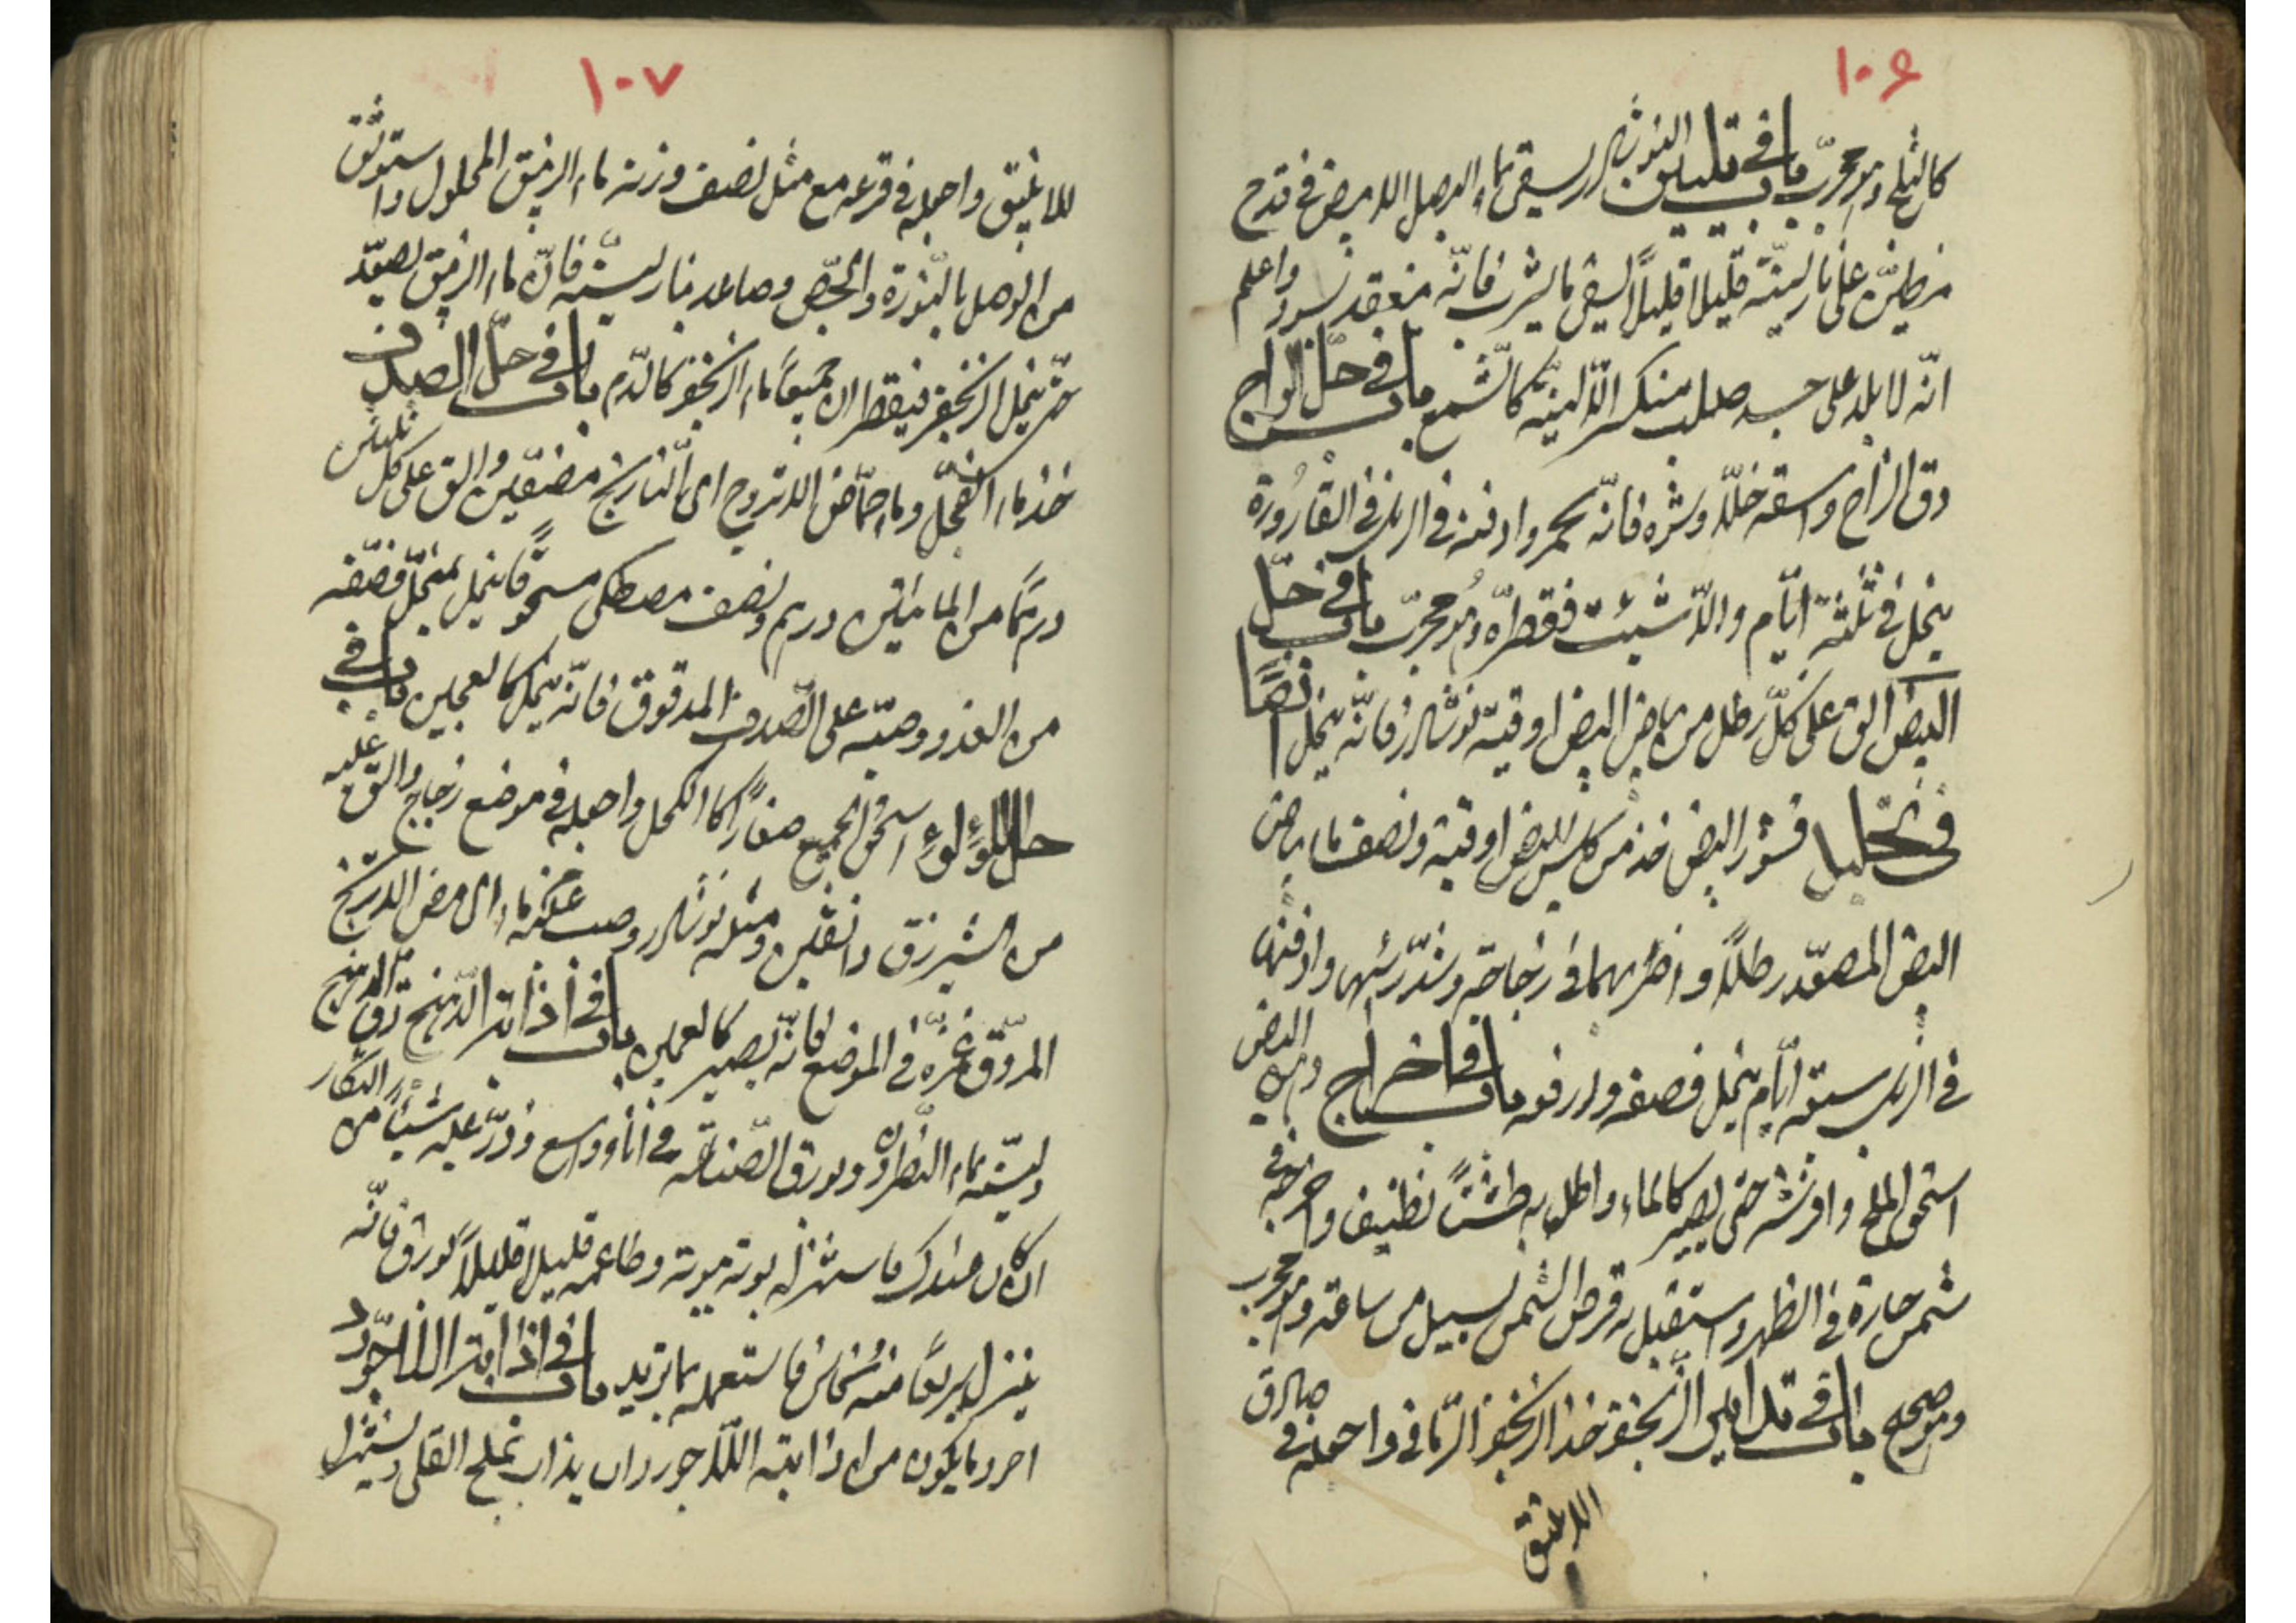 ١٠٦
كالثلج وهو مجرب باب في تليين النوشادر يسقى بماء البصل الابيض في قدح
مطين على نار لينة قليلا قليلاً يسقى ما يشرب فانّه منعقد اسود واعلم
انّه لا يلد على جسد صلب منكسر الّا لينه كالشمع باب في حلّ الزاج
دق الزاج واسقه خلّا وشره فانّه يحمر وادفنه في الزبل في القارورة
ينحل في ثلثة ايّام والّا شئت فقطره وهو مجرّب باب في حلّ
البيض الق على كلّ رطل من بياض البيض اوقية نوشادر فانّه ينحل ايضا
في تحليل قشور البيض خذ من كلس البيض اوقية ونصف ماء بياض
البيض المصعّد رطلاً واضربهما في زجاجة وسدّ رأسها وادفنها
في الزبل ستة ايّام ينحل فصفه وارفعه باب في اخراج دهن البيض
اسحق الملح وافرشه حتى يصير كالماء واطل به طشتاً نظيف واخرجه في
شمس حارة في الظهر واستقبل به قرص الشمس يسيل من ساعته وهو مجرب
وهو صحيح باب في تليين الزنجفر خذ الزنجفر الرمّاني واجعله في صادق
اللايقيق
١٠٧
للايقيق واجعله في قرعة مع مثل نصف وزنه ماء الزيبق المحلول واستوثق
من الوصل بالنّورة والجصّ وصاعد بنار ليّنة فانّ ماء الزيبق يصعّد
حتى ينحل الزنجفر فيقطران جميعاً ماء الزنجفر كالدّم باب في حلّ الصدف
خذ ماء الفجل وماء حمّاض الاتروج اى النارنج مصفّيين والق على كل ثلثين
درهماً من المائين درهم ونصف مصطكى مسحوقا ينحل فصفه
من الغد وصبّه على الصّدف المدقوق فانّه ينحل كالعجين باب في
حل اللؤلؤ اسحق الجميع صغاراً كالكحل واجعله في موضع زجاج والق عليه
من الشيرزق دانقين ومثله نوشادر وصب عليه ماء حماض الاترنج
المروّق غمرّه في الموضع فانّه يصير كالعجين باب في اذابة الدّهنج دق الدهنج
وليّنه بماء النطرون وبورق الصّناعة في اناء واسع وذرّ عليه شيئاً من التنكار
ان كان عندك فاستنزله بوته بوته وطاعمه قليلا قليلاً بورق فانّه
ينزل سريعاً منه نحاس فاستعمله بما تريد باب في اذابة اللازورد
اجود ما يكون من اذابته اللازورد ان يذاب بملح القلى ويستنزل